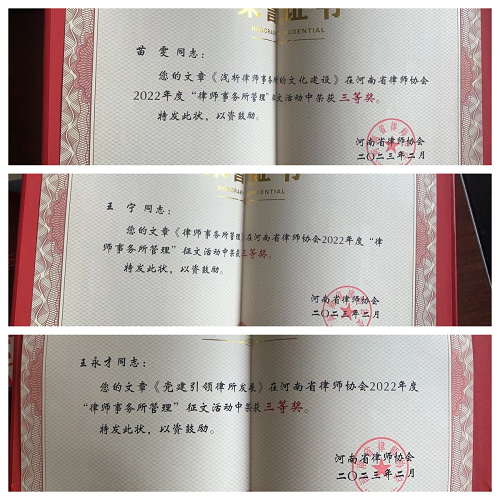 荣誉证书
HONORARY CREDENTIAL
苗 雯 同志：
您的文章《浅析律师事务所的文化建设》在河南省律师协会
2022年度“律师事务所管理”征文活动中荣获 三等奖。
特发此状，以资鼓励。
河南省律师协会
二〇二三年二月
王 宁 同志：
您的文章《律师事务所管理》在河南省律师协会2022年度“律
师事务所管理”征文活动中荣获三等奖。
特发此状，以资鼓励。
河南省律师协会
二〇二三年二月
王永才同志：
您的文章《党建引领律所发展》在河南省律师协会2022年度
“律师事务所管理”征文活动中荣获 三等奖。
特发此状，以资鼓励。
河南省律师协会
二〇二三年二月